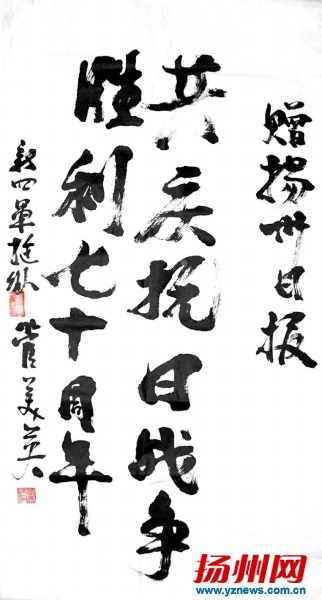 赠揚州日报
共庆抗日战争
胜利七十周年
新四軍挺纵 管美英
扬州网
www.yznews.com.cn